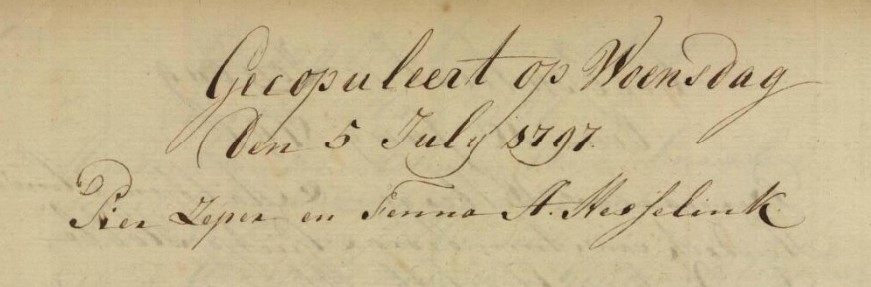 Gecopuleert op Woensdag
Den 5 July 1797.
Pier Zeper en Fenna A. Hesselink